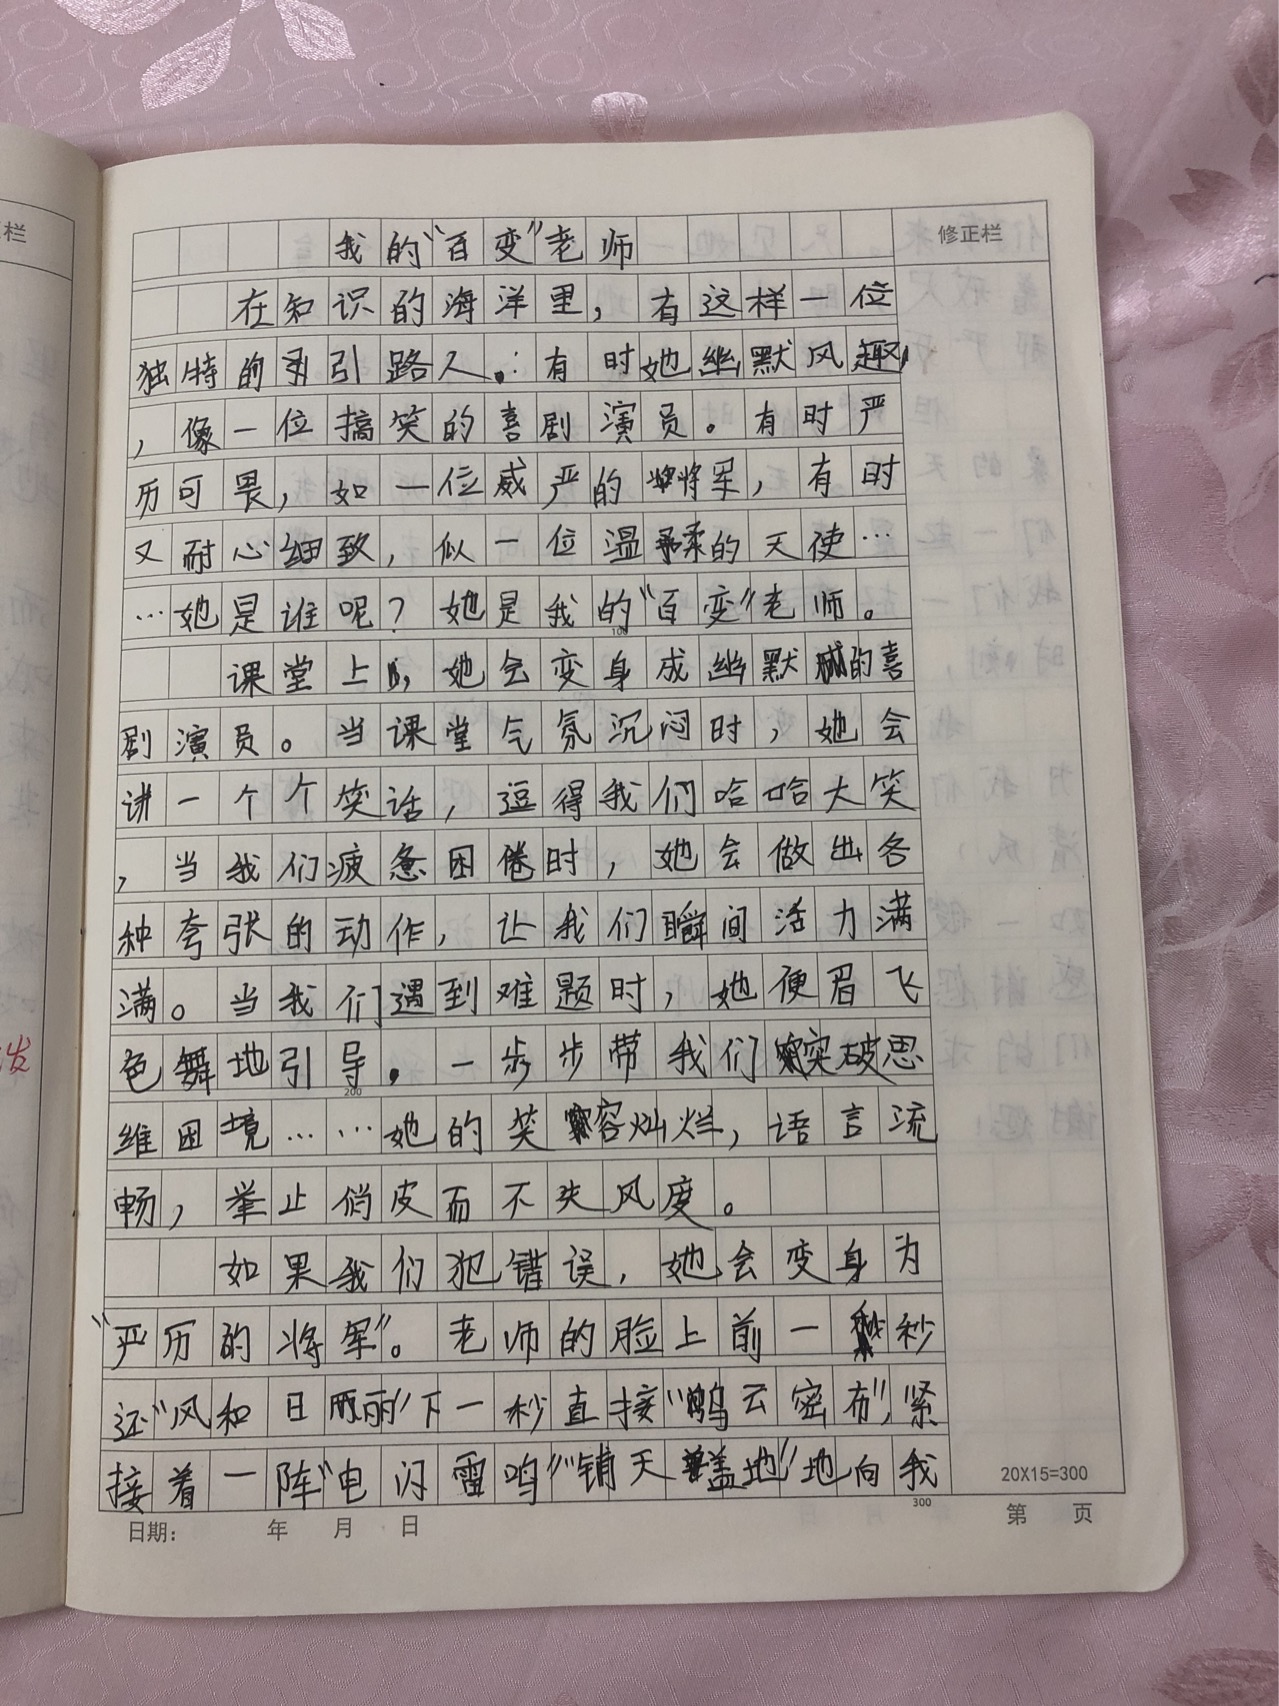 栏
修正栏
我的“百变”老师
在知识的海洋里，有这样一位
独特的引路人：有时她幽默风趣
，像一位搞笑的喜剧演员。有时严
历可畏，如一位威严的将军，有时
又耐心细致，似一位温柔的天使…
…她是谁呢？她是我的“百变”老师。
100
课堂上，她会变身成幽默的喜
剧演员。当课堂气氛沉闷时，她会
讲一个个笑话，逗得我们哈哈大笑
，当我们疲惫困倦时，她会做出各
种夸张的动作，让我们瞬间活力满
满。当我们遇到难题时，她便眉飞
色舞地引导。一步步带我们突破思
200
维困境……她的笑容灿烂，语言流
畅，举止俏皮而不失风度。
如果我们犯错误，她会变身为
“严历的将军”。老师的脸上前一秒
还“风和日丽”下一秒直接“云密布”，紧
接着一阵“电闪雷鸣”“铺天盖地”地向我
20X15=300
300
日期： 年 月 日
第 页